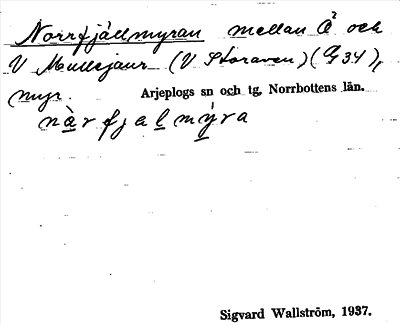 Norrfjällmyran mellan Å² och
V Mullejaur (V Storaven) (G 34),
myr. Arjeplogs sn och tg, Norrbottens län.
nàrfjalmýra
Sigvard Wallström, 1937.